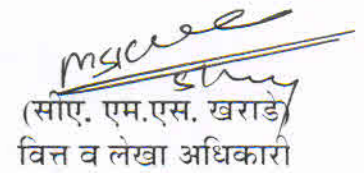 (सीए. एम.एस. खराडे)
वित्त व लेखा अधिकारी